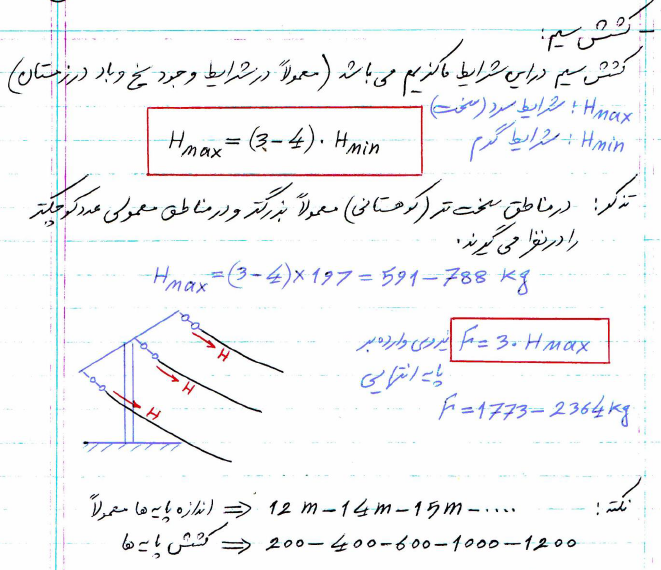 - کشش سیم:
کشش سیم در این شرایط ماکزیمم می باشد (معمولاً در شرایط وجود یخ و باد در زمستان)
Hmax : شرایط سرد (سخت)
Hmin : شرایط گرم
Hmax = (3-4) . Hmin
تذکر: در مناطق سخت تر (کوهستانی) معمولاً بزرگتر و در مناطق معمولی عدد کوچکتر
را در نظر می گیرند.
Hmax = (3-4) × 197 = 591 - 788 kg
F = 3 . Hmax نیروی وارده بر
پایه انتهایی
F = 1773 - 2364 kg
H
H
H
نکته: 12m - 14m - 15m - .... ⇐ اندازه پایه ها معمولاً
200 - 400 - 600 - 1000 - 1200 ⇐ کشش پایه ها